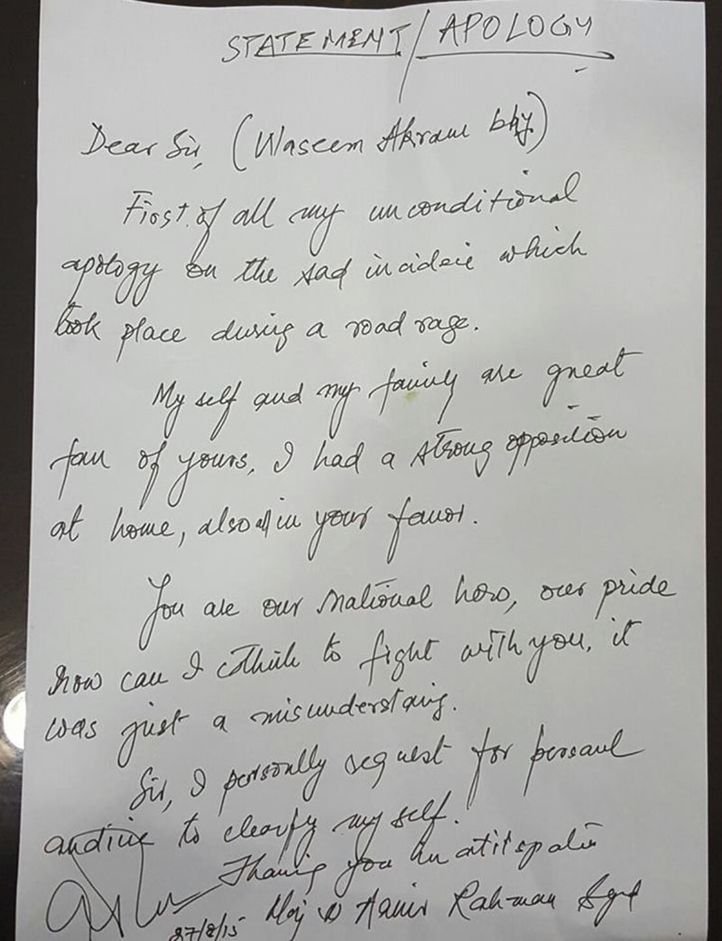 STATEMENT/APOLOGY
Dear Sir, (Waseem Akram bhy)
First of all my unconditional
apology on the sad incideie which
took place during a road rage.
My self and my faimly are great
fan of yours, I had a strong opposition
at home, also all in your favor.
You are our National hero, our pride
how can I think to fight with you, it
was just a misunderstaing.
Sir, I personlly request for persaul
to clearfy my self.
Thanig you in
27/8/15 Maj ® Aamir Rahman